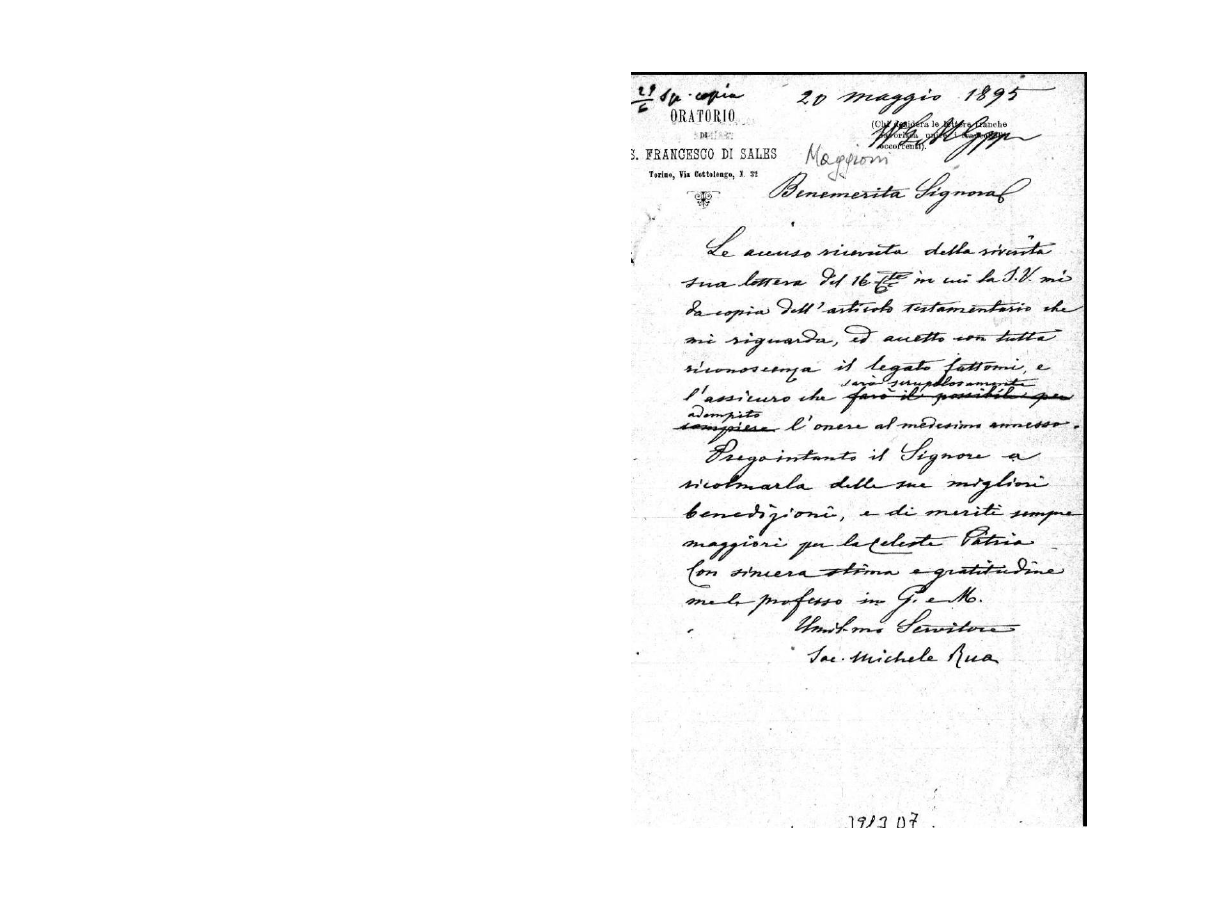 29/6 Sp. copia
20 maggio 1895
ORATORIO
DI
S. FRANCESCO DI SALES
Torino, Via Cottolengo, N. 32
(Chi desidera le lettere franche
occorrenti).
Maggioni
Benemerita Signora
Le accuso ricevuta della riverita
sua lettera del 16 in cui la S.V. mi
da copia dell'articolo testamentario che
mi riguarda, ed accetto con tutta
riconoscenza il legato fattomi, e
sarà scrupolosamente
l'assicuro che farò il possibile per
adempito
compiere l'onere al medesimo annesso.
Prego intanto il Signore a
ricolmarla delle sue migliori
benedizioni, e di meriti sempre
maggiori per la Celeste Patria
Con sincera stima e gratitudine
me le professo in G. e M.
Umil.mo Servitore
Sac. Michele Rua